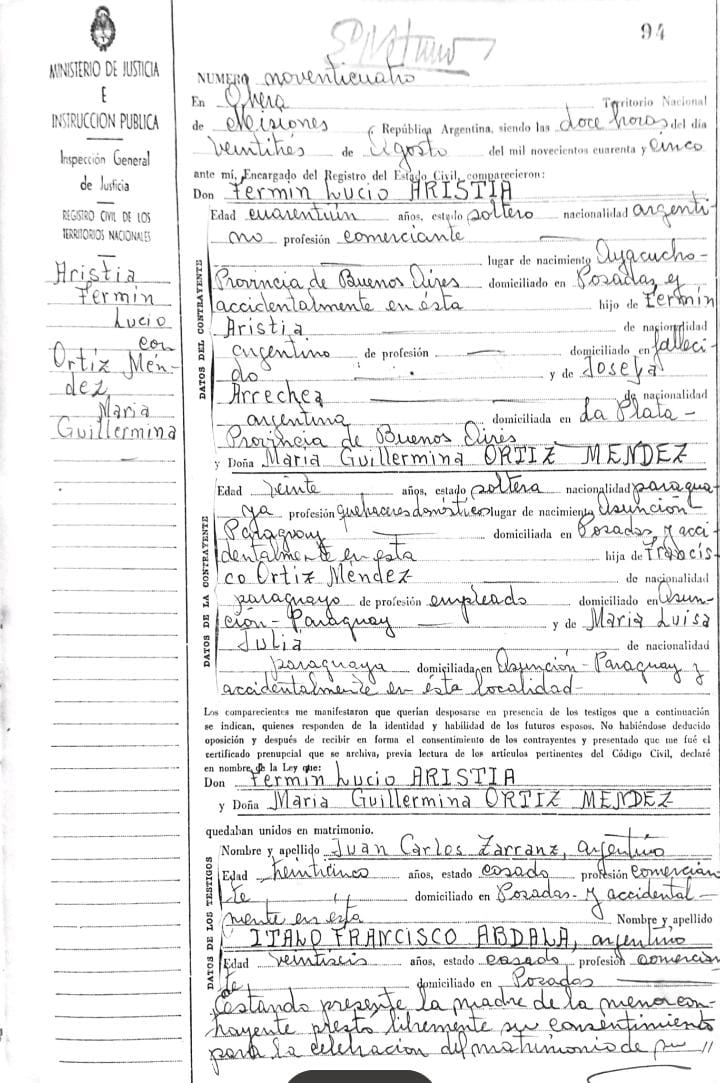 94
MINISTERIO DE JUSTICIA
E
INSTRUCCION PUBLICA
Inspección General
de Justicia
REGISTRO CIVIL DE LOS
TERRITORIOS NACIONALES
Aristia
Fermin
Lucio
con
Ortiz Mén-
dez
Maria
Guillermina
NUMERO noventicuatro
En Oberá Territorio Nacional
de Misiones República Argentina, siendo las doce horas del día
veintitrés de Agosto del mil novecientos cuarenta y cinco
ante mí, Encargado del Registro del Estado Civil, comparecieron:
Don Fermin Lucio ARISTIA
DATOS DEL CONTRAYENTE
Edad cuarentiun años, estado soltero nacionalidad argenti-
no profesión comerciante
lugar de nacimiento Ayacucho-
Provincia de Buenos Aires domiciliado en Posadas, y
accidentalmente en ésta hijo de Fermín
Aristia de nacionalidad
argentino de profesión domiciliado en falleci-
do y de Josefa
Arrechea de nacionalidad
argentina domiciliada en La Plata-
Provincia de Buenos Aires
y Doña Maria Guillermina ORTIZ MENDEZ
DATOS DE LA CONTRAYENTE
Edad veinte años, estado soltera nacionalidad paragua-
ya profesión quehaceres domésticos lugar de nacimiento Asunción
Paraguay domiciliada en Posadas, y acci-
dentalmente en esta hija de Francis-
co Ortiz Méndez de nacionalidad
paraguayo de profesión empleado domiciliado en Asun-
ción-Paraguay y de Maria Luisa
Juliá de nacionalidad
paraguaya domiciliada en Asunción-Paraguay y
accidentalmente en ésta localidad-
Los comparecientes me manifestaron que querían desposarse en presencia de los testigos que a continuación
se indican, quienes responden de la identidad y habilidad de los futuros esposos. No habiéndose deducido
oposición y después de recibir en forma el consentimiento de los contrayentes y presentado que me fué el
certificado prenupcial que se archiva, previa lectura de los artículos pertinentes del Código Civil, declaré
en nombre de la Ley que:
Don Fermin Lucio ARISTIA
y Doña Maria Guillermina ORTIZ MENDEZ
quedaban unidos en matrimonio.
DATOS DE LOS TESTIGOS
Nombre y apellido Juan Carlos Zarranz, argentino
Edad veinticinco años, estado casado profesión comercian
te domiciliado en Posadas-y accidental-
mente en esta Nombre y apellido
ITALO FRANCISCO ABDALA, argentino
Edad veintiseis años, estado casado profesión comercian
te domiciliado en Posadas
Estando presente la madre de la menor con-
trayente prestó libremente su consentimiento
para la celebración del matrimonio de su //